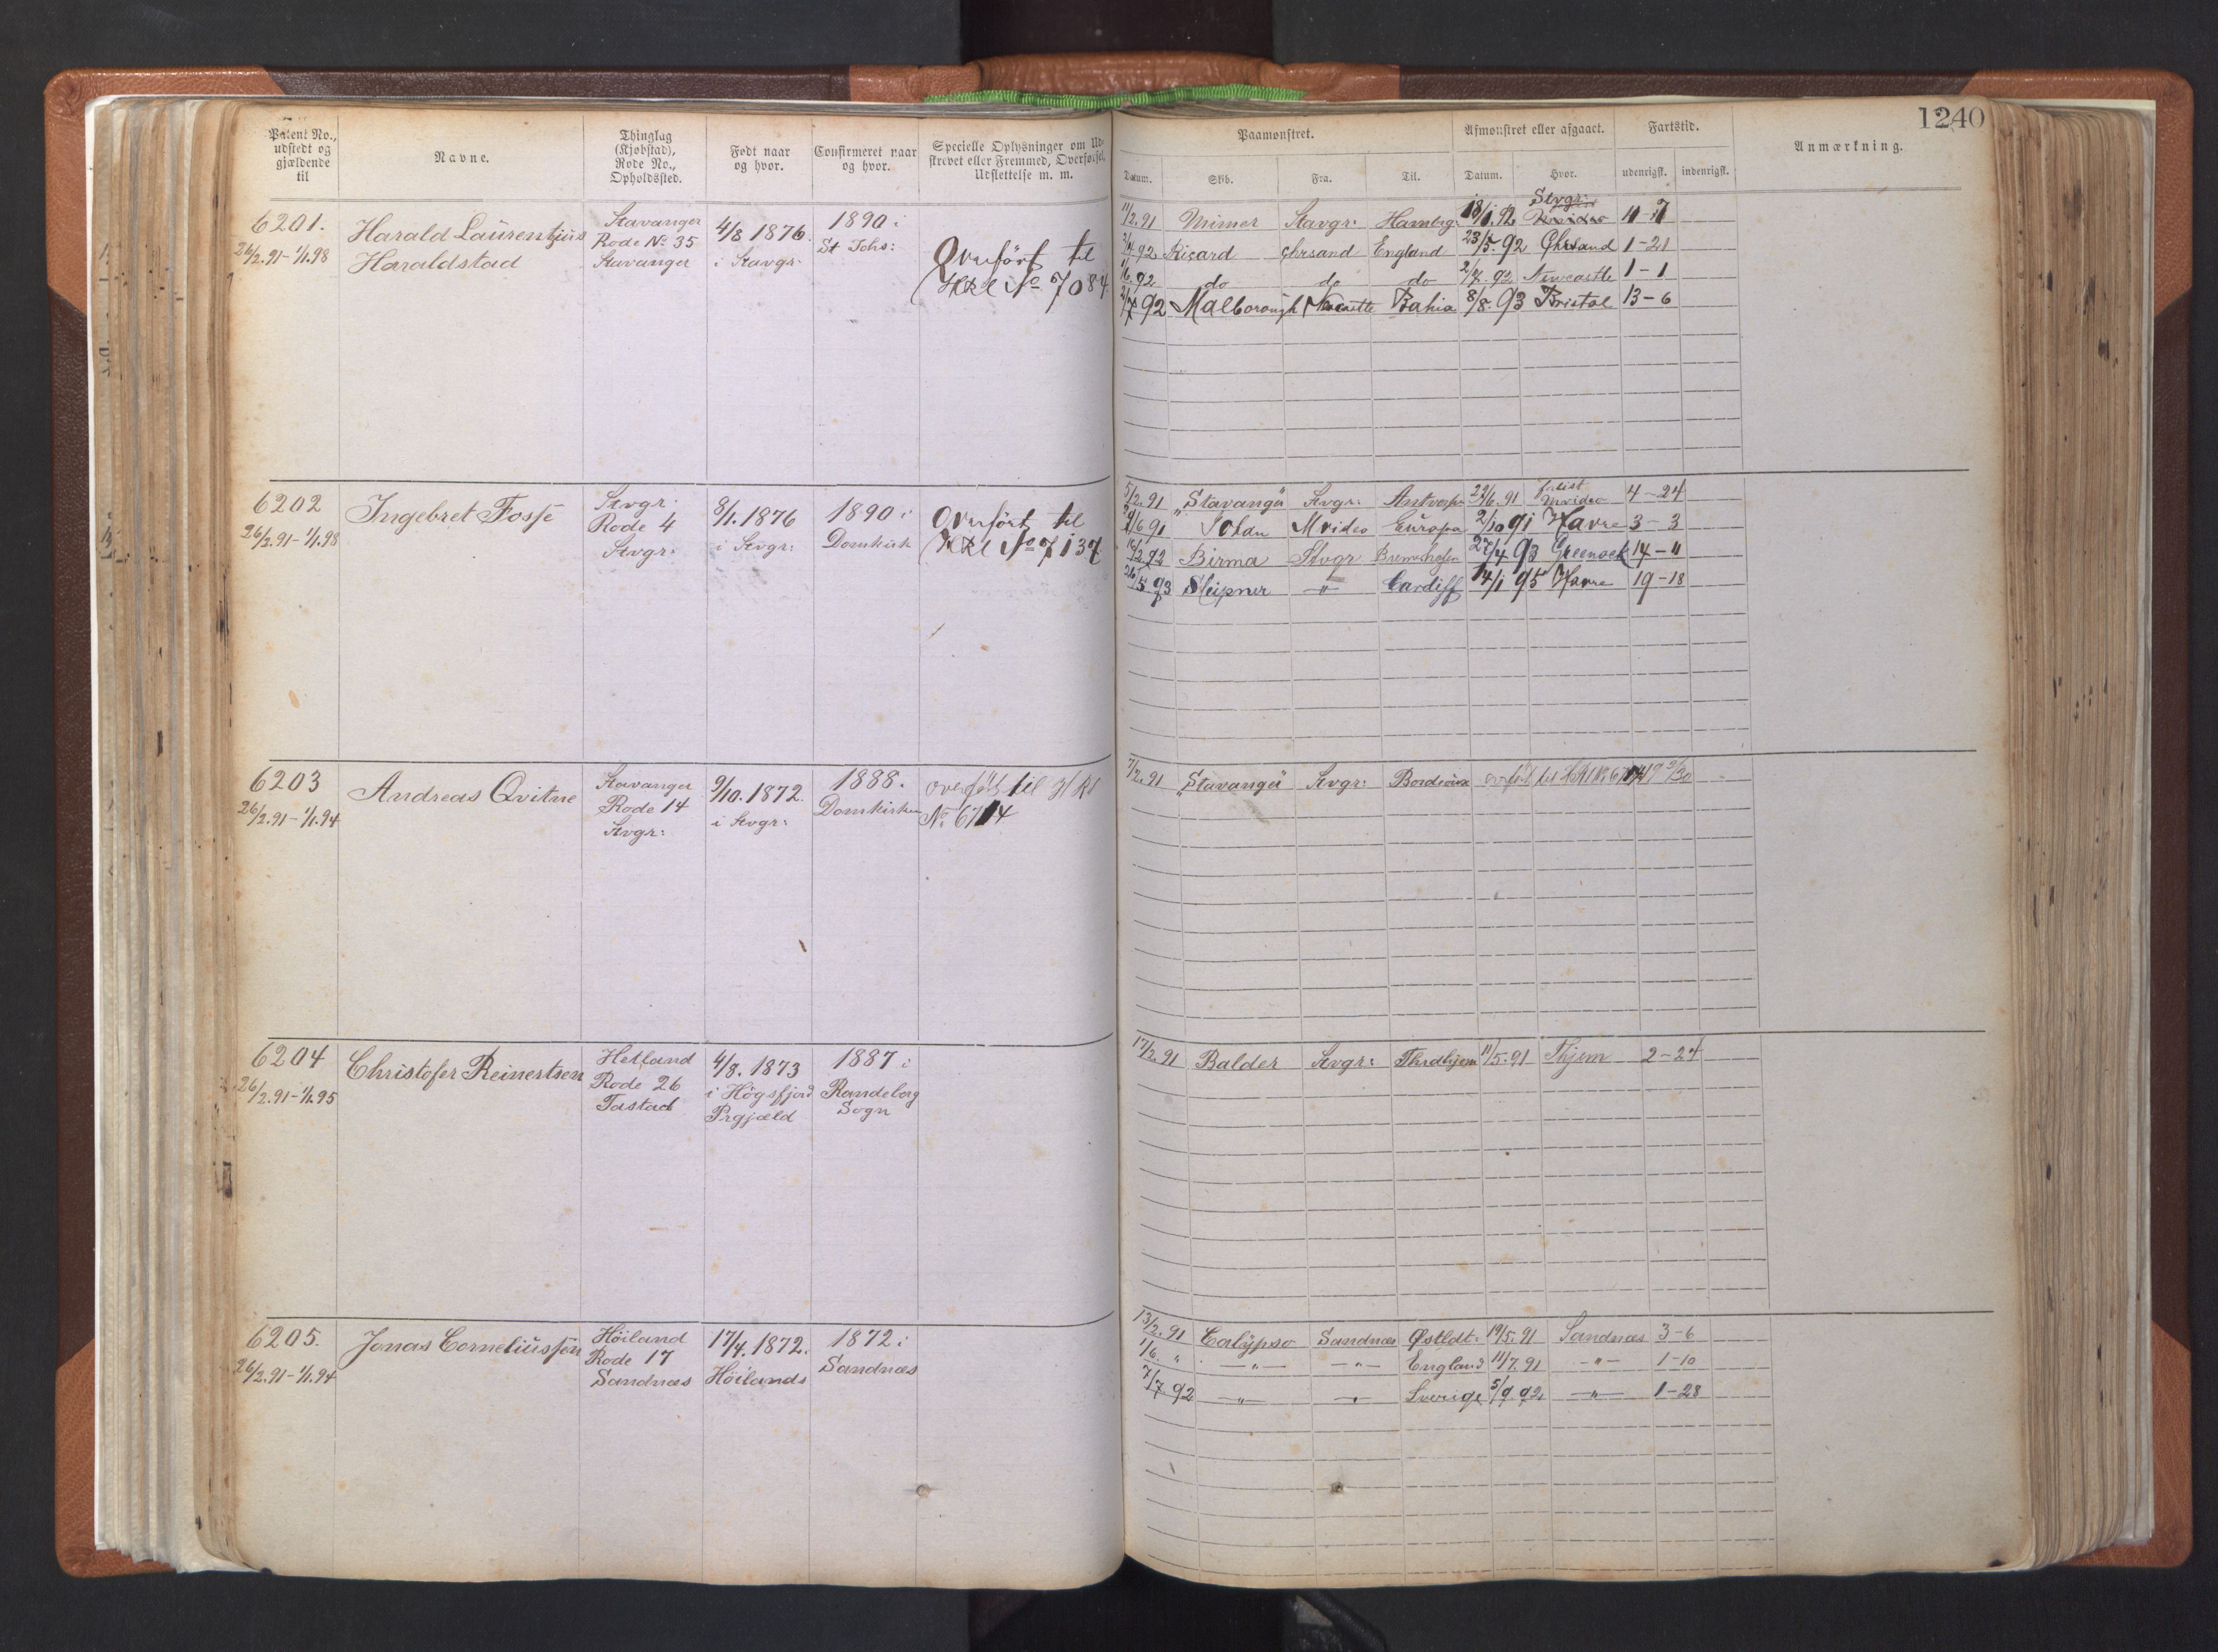 1240
Patent No., udstedt og gjældende til
Navne.
Thinglag (Kjøbstad), Rode No., Opholdssted.
Født naar og hvor.
Confirmeret naar og hvor.
Specielle Oplysninger om Udstrevet eller Fremmed, Overførsel, Udslettelse m. m.
Paamønstret.
Afmønstret eller afgaaet.
Fartstid.
Anmærkning.
Datum. Skib. Fra. Til. Datum. Hvor. udenrigsk. indenrigsk.
6201.
26/2.91-1/1.98
Harald Laurentjus
Haraldstad
Stavanger
Rode No 35
Stavanger
4/8 1876
i Stavgr.
1890 i
St Johs:
Overført til
HRl No 7084
Stvgr:
11/2.91 Mimer Stavgr: Hambrg. 18/1.92 11-7
92 Ricard Chrsand England 23/5.92 Chrsand 1-21
92 do do do 2/7.92 Newcastle 1-1
2/7 92 Malborough Newcastle Bahia 8/8.93 Bristol 13-6
6202
26/2.91-1/1.98
Ingebret Fosse
Stvgr.
Rode 4
Stvgr:
8/1.1876
i Stvgr:
1890 i
Domkirk
Overført til
HRl No 7137
5/2.91 "Stavanger Stvgr: Antverpn 22/6.91 Mvideo 4-24
6 91 Johan Mvideo Europa 2/10 91 Havre 3-3
92 Birma Stvgr 27/4 93 Greenock 14-"
93 Sleipner " Cardiff 14/1 95 Havre 19-18
6203
26/2.91-1/1.94
Andreas Qvitne
Stavanger
Rode 14
Stvgr:
9/10.1872.
i Stvgr:
1888.
Domkirken
overført til HRl
No 6714
7/2.91 "Stavanger Stvgr: Bordeaux overført til HRl No 6714
6204
26/2.91-1/1.95
Christofer Reinertsen
Hetland
Rode 26
Tastad
4/8. 1873
i Högsfjord
Prgjæld
1887 i
Randeberg
Sogn
17/2.91 Balder Stvgr: Thrdhjem 11/5.91 Thjem 2-24
6205.
26/2.91-1/1.94
Jonas Corneliussen
Höiland
Rode 17
Sandnæs
17/4. 1872.
Höilands
1872 i
Sandnæs
13/2.91 Calypso Sandnæs Østldt: 19/5.91 Sandnæs 3-6
1/6. " -"- -"- England 11/7.91 -"- 1-10
7/7 92 -"- -"- Sverige 5/9 92 -"- 1-28